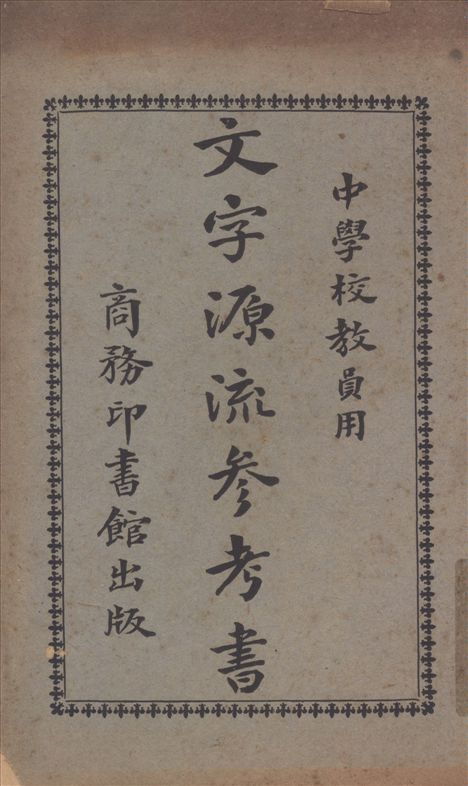 中學校教員用
文字源流参考書
商務印書館出版